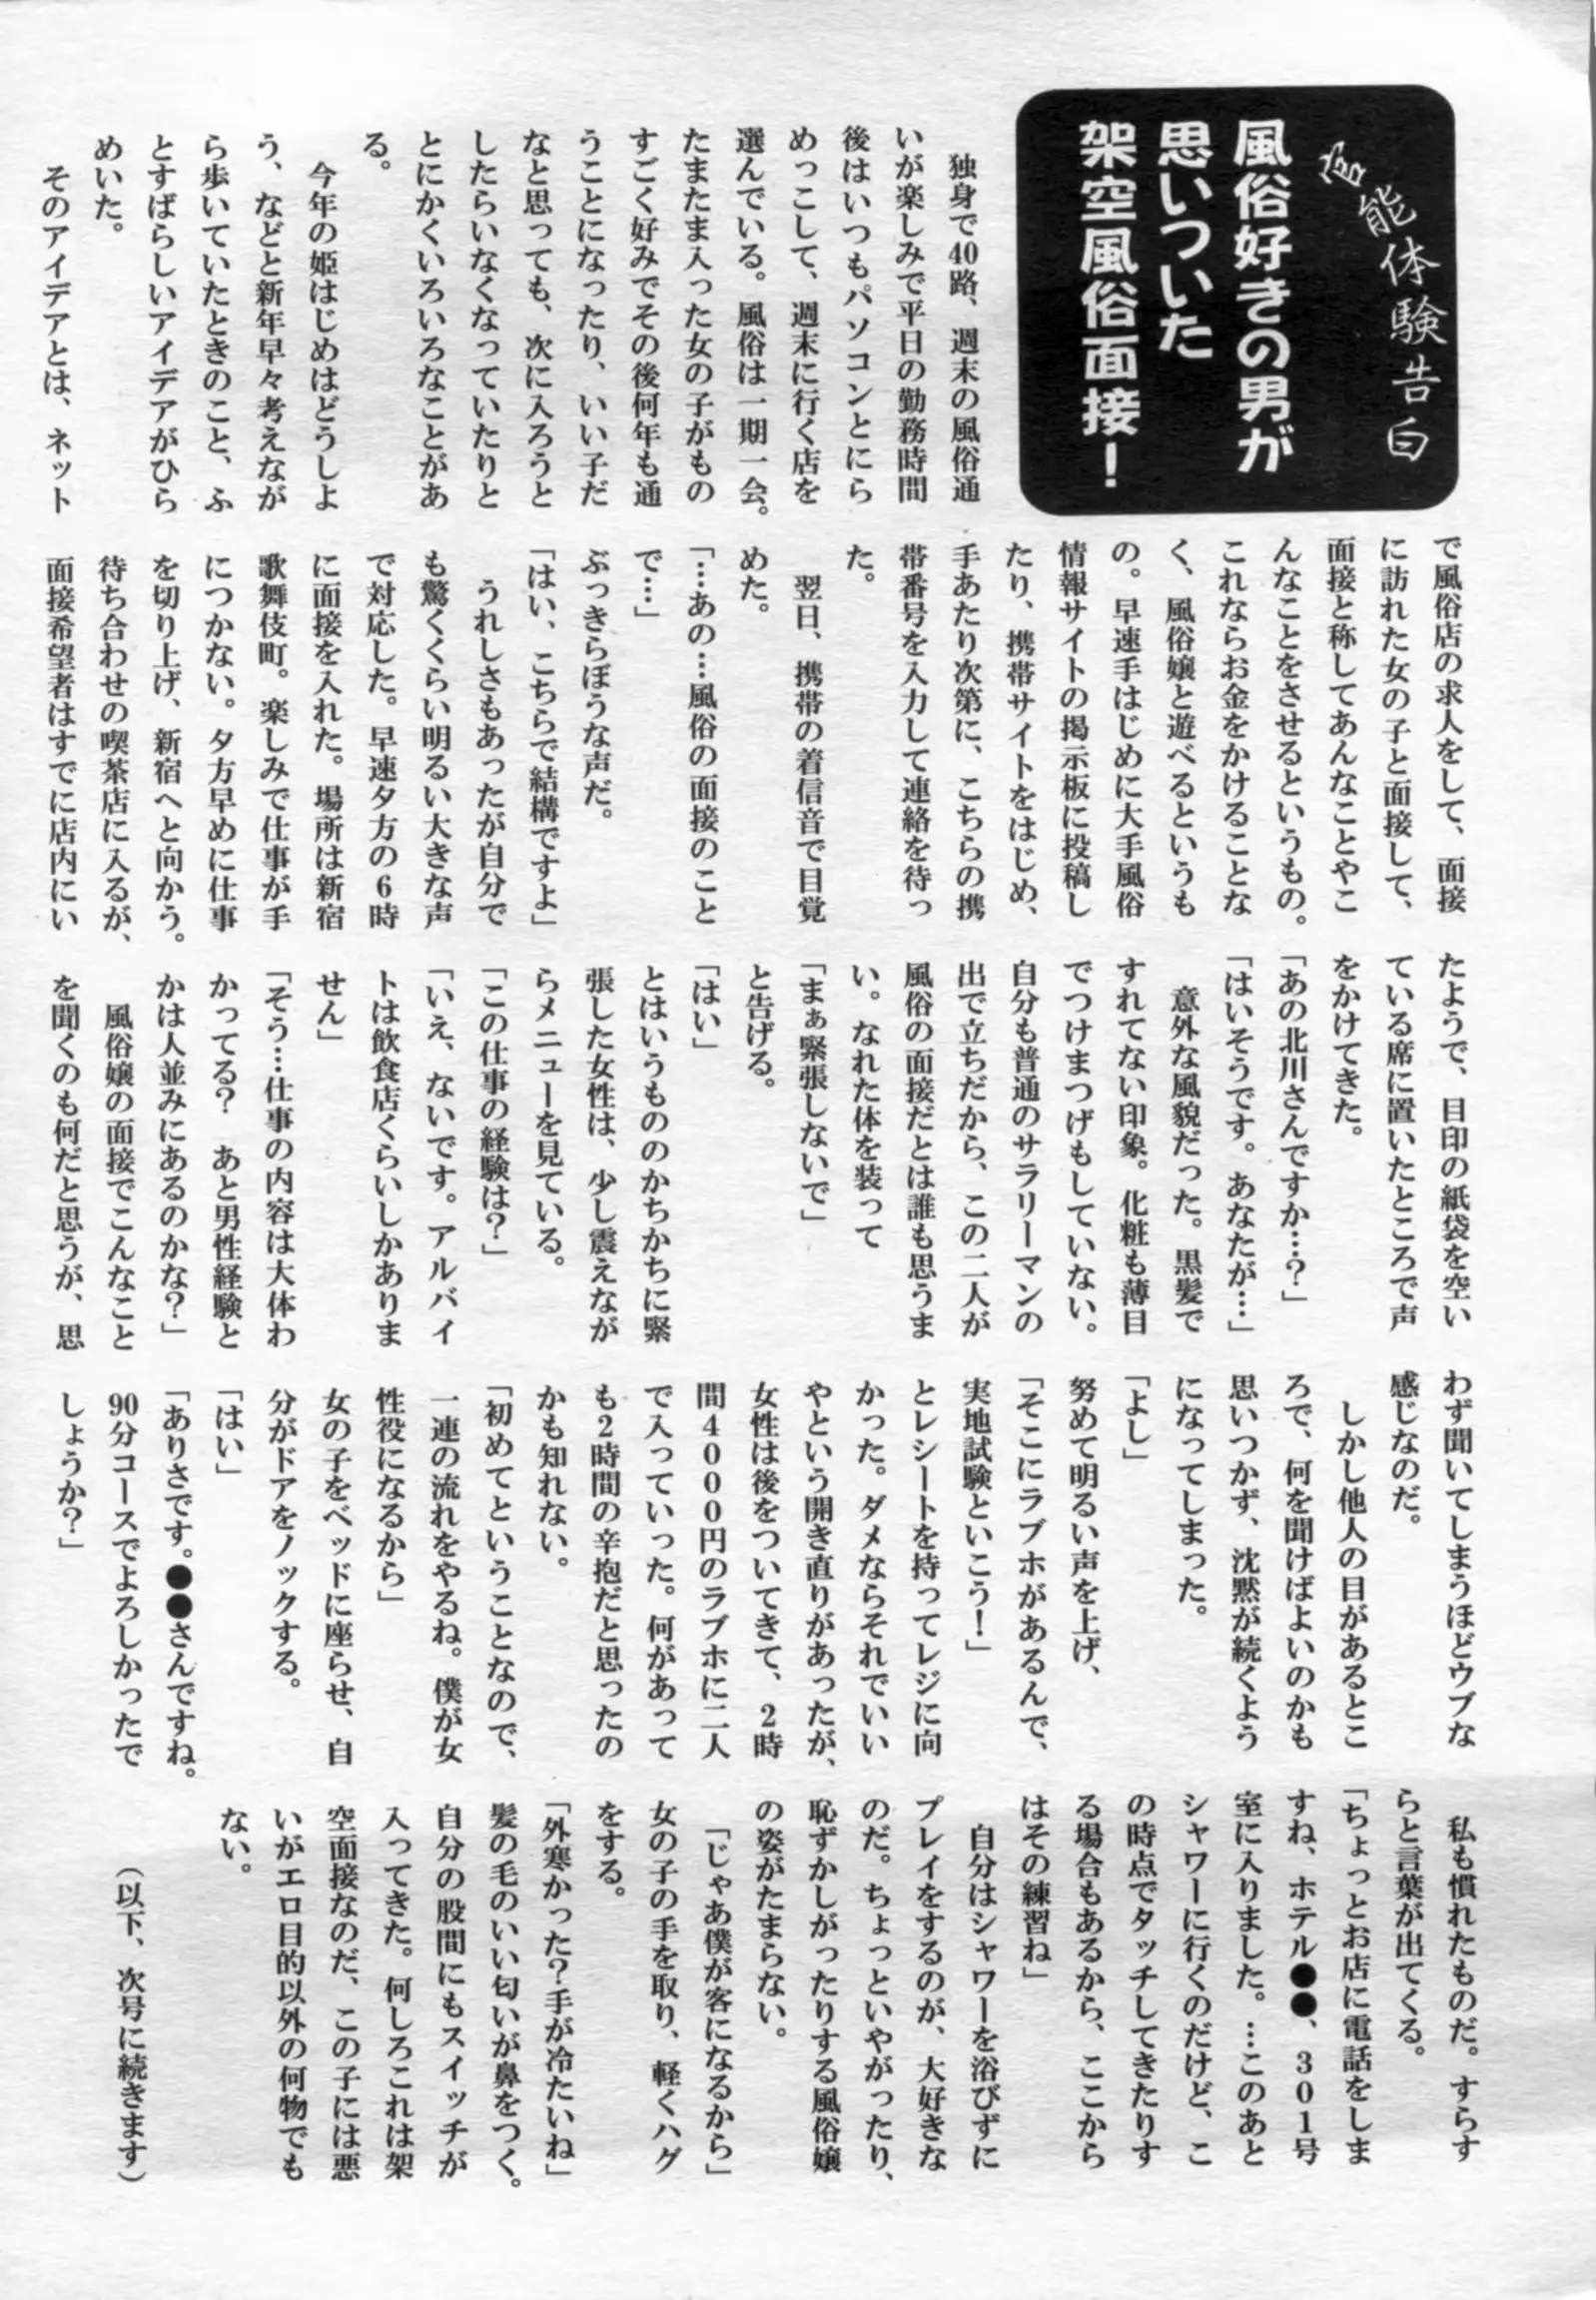 官能体験告白
風俗好きの男が
思いついた
架空風俗面接！
独身で40路、週末の風俗通
いが楽しみで平日の勤務時間
後はいつもパソコンとにら
めっこして、週末に行く店を
選んでいる。風俗は一期一会。
たまたま入った女の子がもの
すごく好みでその後何年も通
うことになったり、いい子だ
なと思っても、次に入ろうと
したらいなくなっていたりと
とにかくいろいろなことがあ
る。
今年の姫はじめはどうしよ
う、などと新年早々考えなが
ら歩いていたときのこと、ふ
とすばらしいアイデアがひら
めいた。
そのアイデアとは、ネット
で風俗店の求人をして、面接
に訪れた女の子と面接して、
面接と称してあんなことやこ
んなことをさせるというもの。
これならお金をかけることな
く、風俗嬢と遊べるというも
の。早速手はじめに大手風俗
情報サイトの掲示板に投稿し
たり、携帯サイトをはじめ、
手あたり次第に、こちらの携
帯番号を入力して連絡を待っ
た。
翌日、携帯の着信音で目覚
めた。
「…あの…風俗の面接のこと
で…」
ぶっきらぼうな声だ。
「はい、こちらで結構ですよ」
うれしさもあったが自分で
も驚くくらい明るい大きな声
で対応した。早速夕方の6時
に面接を入れた。場所は新宿
歌舞伎町。楽しみで仕事が手
につかない。夕方早めに仕事
を切り上げ、新宿へと向かう。
待ち合わせの喫茶店に入るが、
面接希望者はすでに店内にい
たようで、目印の紙袋を空い
ている席に置いたところで声
をかけてきた。
「あの北川さんですか…？」
「はいそうです。あなたが…」
意外な風貌だった。黒髪で
すれてない印象。化粧も薄目
でつけまつげもしていない。
自分も普通のサラリーマンの
出で立ちだから、この二人が
風俗の面接だとは誰も思うま
い。なれた体を装って
「まぁ緊張しないで」
と告げる。
「はい」
とはいうもののかちかちに緊
張した女性は、少し震えなが
らメニューを見ている。
「この仕事の経験は？」
「いえ、ないです。アルバイ
トは飲食店くらいしかありま
せん」
「そう…仕事の内容は大体わ
かってる？　あと男性経験と
かは人並みにあるのかな？」
風俗嬢の面接でこんなこと
を聞くのも何だと思うが、思
わず聞いてしまうほどウブな
感じなのだ。
しかし他人の目があるとこ
ろで、何を聞けばよいのかも
思いつかず、沈黙が続くよう
になってしまった。
「よし」
努めて明るい声を上げ、
「そこにラブホがあるんで、
実地試験といこう！」
とレシートを持ってレジに向
かった。ダメならそれでいい
やという開き直りがあったが、
女性は後をついてきて、2時
間4000円のラブホに二人
で入っていった。何があって
も2時間の辛抱だと思ったの
かも知れない。
「初めてということなので、
一連の流れをやるね。僕が女
性役になるから」
女の子をベッドに座らせ、自
分がドアをノックする。
「はい」
「ありさです。●●さんですね。
90分コースでよろしかったで
しょうか？」
私も慣れたものだ。すらす
らと言葉が出てくる。
「ちょっとお店に電話をしま
すね、ホテル●●、301号
室に入りました。…このあと
シャワーに行くのだけど、こ
の時点でタッチしてきたりす
る場合もあるから、ここから
はその練習ね」
自分はシャワーを浴びずに
プレイをするのが、大好きな
のだ。ちょっといやがったり、
恥ずかしがったりする風俗嬢
の姿がたまらない。
「じゃあ僕が客になるから」
女の子の手を取り、軽くハグ
をする。
「外寒かった？手が冷たいね」
髪の毛のいい匂いが鼻をつく。
自分の股間にもスイッチが
入ってきた。何しろこれは架
空面接なのだ、この子には悪
いがエロ目的以外の何物でも
ない。
（以下、次号に続きます）